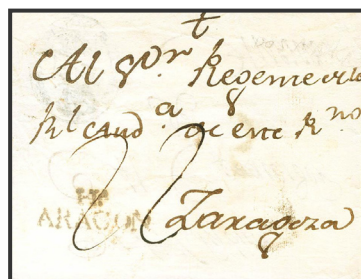 Al Sor Regente
Rl Aud.a de este R.no
HP
ARAGON
Zaragoza